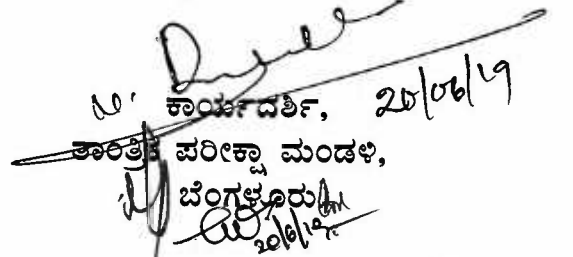 ಕಾರ್ಯದರ್ಶಿ, 20/06/19
ತಾಂತ್ರಿಕ ಪರೀಕ್ಷಾ ಮಂಡಳಿ,
ಬೆಂಗಳೂರು
20/6/19